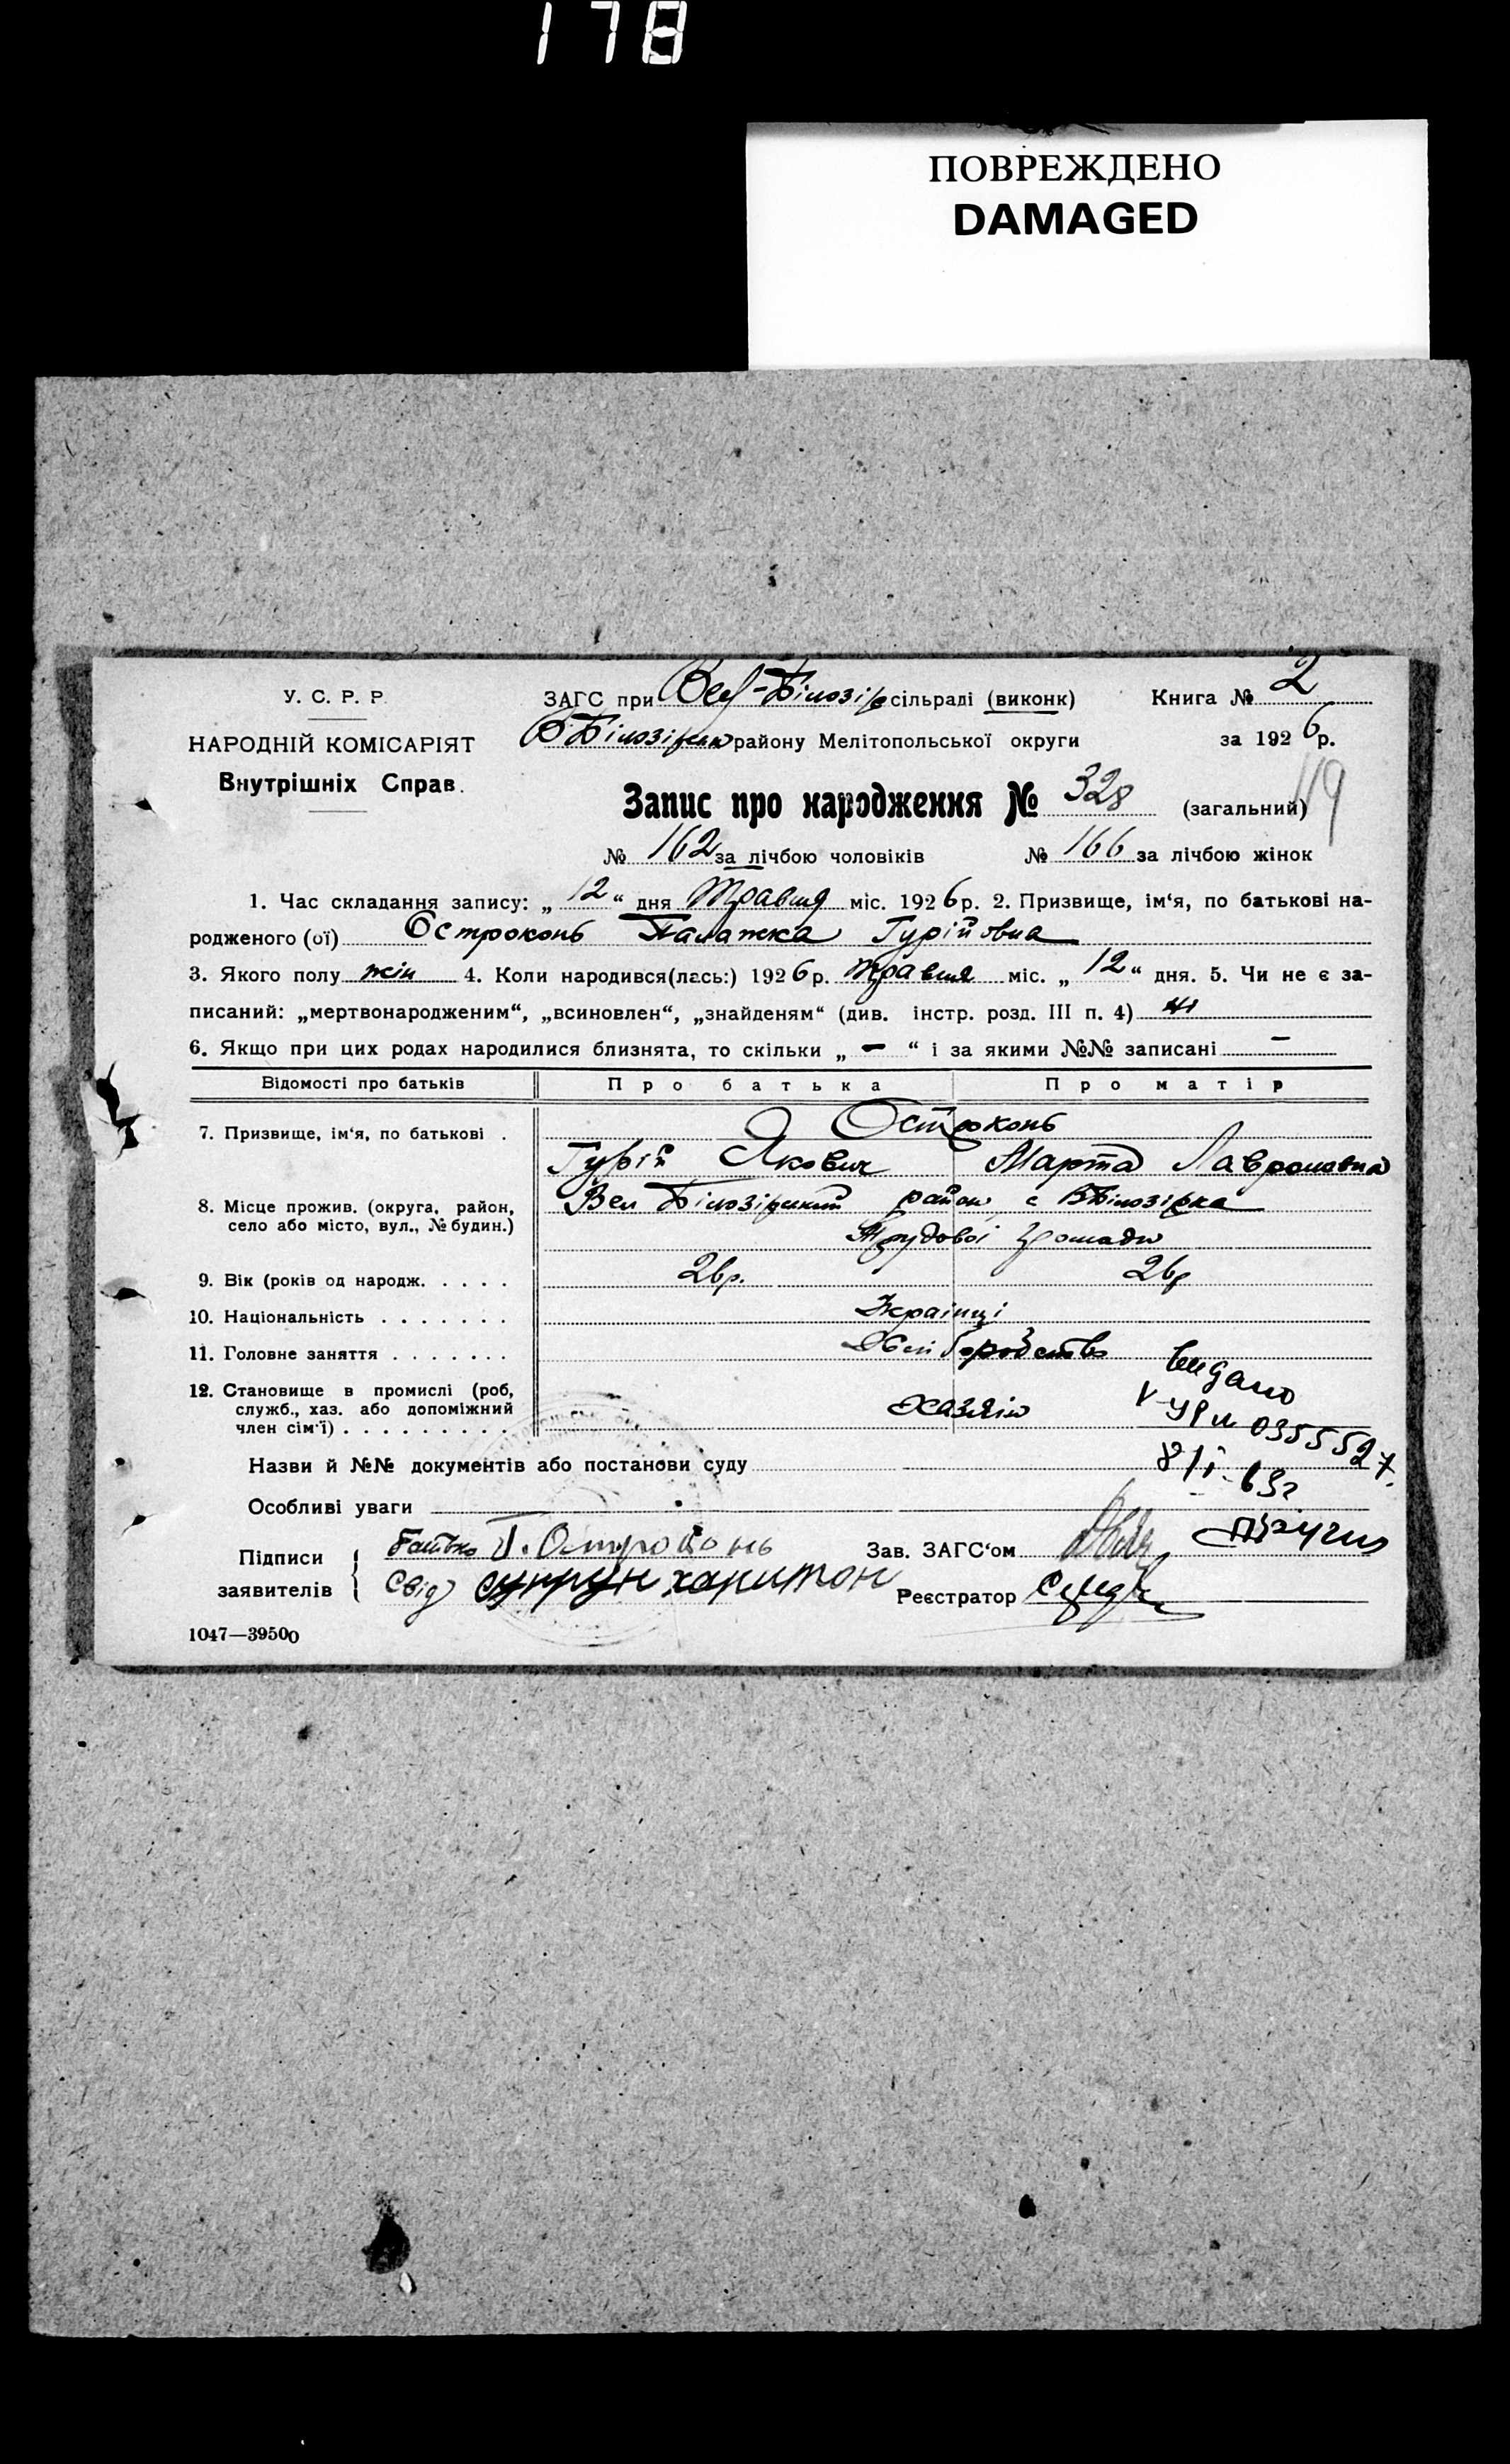 178
ПОВРЕЖДЕНО
DAMAGED
У. С. Р. Р.
НАРОДНІЙ КОМІСАРІЯТ
Внутрішніх Справ.
ЗАГС при Вел-Білозір сільраді (виконк)
Книга № 2
В Білозірськ району Мелітопольської округи
за 1926 р.
Запис про народження № 328 (загальний)
119
№ 162 за лічбою чоловіків № 166 за лічбою жінок
1. Час складання запису: „ 12 “ дня Травня міс. 1926 р. 2. Призвище, ім‘я, по батькові на-
родженого (ої) Остроконь Палажка Гурійовна
3. Якого полу жін 4. Коли народився(лась:) 1926 р. травня міс. „ 12 “ дня. 5. Чи не є за-
писаний: „мертвонародженим“, „всиновлен“, „знайденям“ (див. інстр. розд. III п. 4) ні
6. Якщо при цих родах народилися близнята, то скільки „ — “ і за якими №№ записані —
Відомості про батьків Про батька Про матір
7. Призвище, ім‘я, по батькові . Остроконь
Гурій Якович Марта Лавроновна
8. Місце прожив. (округа, район, село або місто, вул., № будин.) Вел Білозірський район, с ВБілозірка
Трудової громади
9. Вік (років од народж. . . . . 26р. 26р
10. Національність . . . . . . . Українці
11. Головне заняття . . . . . . . Хліборобство
12. Становище в промислі (роб, служб., хаз. або допоміжний член сім‘ї) . . . . . . . . . хазяїн
видано
V-УР № 0355527
8/I-63г
Назви й №№ документів або постанови суду
Особливі уваги
Підписи заявителів
батько Г. Остроконь
Свід Супрун харитон
Зав. ЗАГС‘ом
Реєстратор
1047—39500